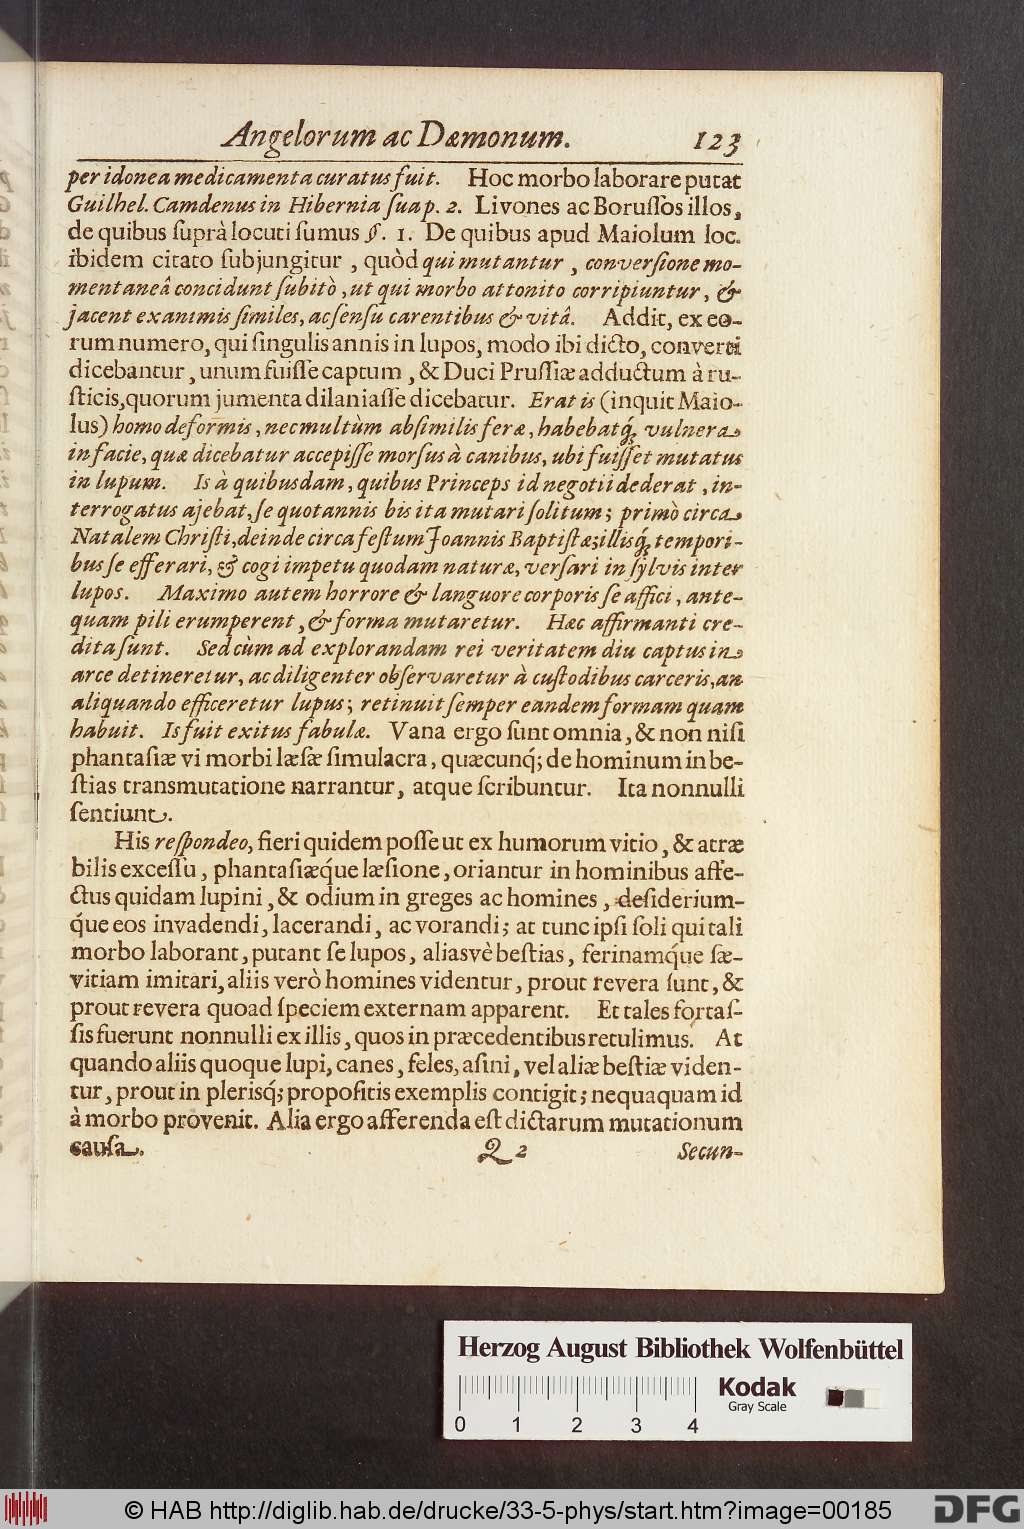 Angelorum ac Dæmonum. 123
per idonea medicamenta curatus fuit. Hoc morbo laborare putat
Guilhel. Camdenus in Hibernia ſua p. 2. Livones ac Boruſſos illos,
de quibus ſuprà locuti ſumus §. 1. De quibus apud Maiolum loc.
ibidem citato ſubjungitur, quòd qui mutantur, converſione mo-
mentaneâ concidunt ſubitò, ut qui morbo attonito corripiuntur, &
jacent exanimis ſimiles, ac ſenſu carentibus & vitâ. Addit, ex eo-
rum numero, qui ſingulis annis in lupos, modo ibi dicto, converti
dicebantur, unum fuiſſe captum, & Duci Pruſſiæ adductum à ru-
ſticis, quorum jumenta dilaniaſſe dicebatur. Erat is (inquit Maio-
lus) homo deformis, nec multùm abſimilis feræ, habebatq́; vulnera
in facie, quæ dicebatur accepiſſe morſus à canibus, ubi fuiſſet mutatus
in lupum. Is à quibusdam, quibus Princeps id negotii dederat, in-
terrogatus ajebat, ſe quotannis bis ita mutari ſolitum; primò circa
Natalem Chriſti, deinde circa feſtum Joannis Baptiſtæ; illisq́; tempori-
bus ſe efferari, & cogi impetu quodam naturæ, verſari in ſylvis inter
lupos. Maximo autem horrore & languore corporis ſe affici, ante-
quam pili erumperent, & forma mutaretur. Hæc affirmanti cre-
dita ſunt. Sed cùm ad explorandam rei veritatem diu captus in
arce detineretur, ac diligenter obſervaretur à cuſtodibus carceris, an
aliquando efficeretur lupus; retinuit ſemper eandem formam quam
habuit. Is fuit exitus fabulæ. Vana ergo ſunt omnia, & non niſi
phantaſiæ vi morbi læſæ ſimulacra, quæcunq́; de hominum in be-
ſtias transmutatione narrantur, atque ſcribuntur. Ita nonnulli
ſentiunt.
His reſpondeo, fieri quidem poſſe ut ex humorum vitio, & atræ
bilis exceſſu, phantaſiæq́ue læſione, oriantur in hominibus affe-
ctus quidam lupini, & odium in greges ac homines, deſiderium-
q́ue eos invadendi, lacerandi, ac vorandi; at tunc ipſi ſoli qui tali
morbo laborant, putant ſe lupos, aliasvè beſtias, ferinamq́ue ſæ-
vitiam imitari, aliis verò homines videntur, prout revera ſunt, &
prout revera quoad ſpeciem externam apparent. Et tales fortaſ-
ſis fuerunt nonnulli ex illis, quos in præcedentibus retulimus. At
quando aliis quoque lupi, canes, feles, aſini, vel aliæ beſtiæ viden-
tur, prout in plerisq́; propoſitis exemplis contigit; nequaquam id
à morbo provenit. Alia ergo afferenda eſt dictarum mutationum
cauſa. Q 2 Secun-
Herzog August Bibliothek Wolfenbüttel
Kodak
Gray Scale
0 1 2 3 4
© HAB http://diglib.hab.de/drucke/33-5-phys/start.htm?image=00185 DFG